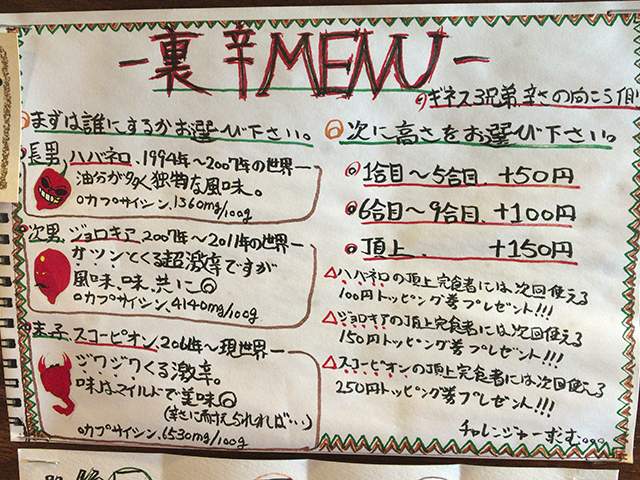 -裏 辛MENU-
ギネス3兄弟、辛さの向こう側
まずは誰にするかお選び下さい。
長男、ハバネロ、1994年～2007年の世界一
油分が多く独特な風味。
カプサイシン、1360mg/100g
次男、ジョロキア 2007年～2011年の世界一
ガツンとくる超激辛ですが
風味、味、共に◎
カプサイシン、4140mg/100g
末子、スコーピオン、
ジワジワくる激辛。
味はマイルドで美味◎
(辛さに耐えられれば…)
カプサイシン、6530mg/100g
次に高さをお選び下さい。
1合目～5合目、+50円
6合目～9合目、+100円
頂上、+150円
△ハバネロの頂上完食者には次回使える
100円トッピング券プレゼント!!!
△ジョロキアの頂上完食者には次回使える
150円トッピング券プレゼント!!!
△スコーピオンの頂上完食者には次回使える
250円トッピング券プレゼント!!!
チャレンジャー求む。。。